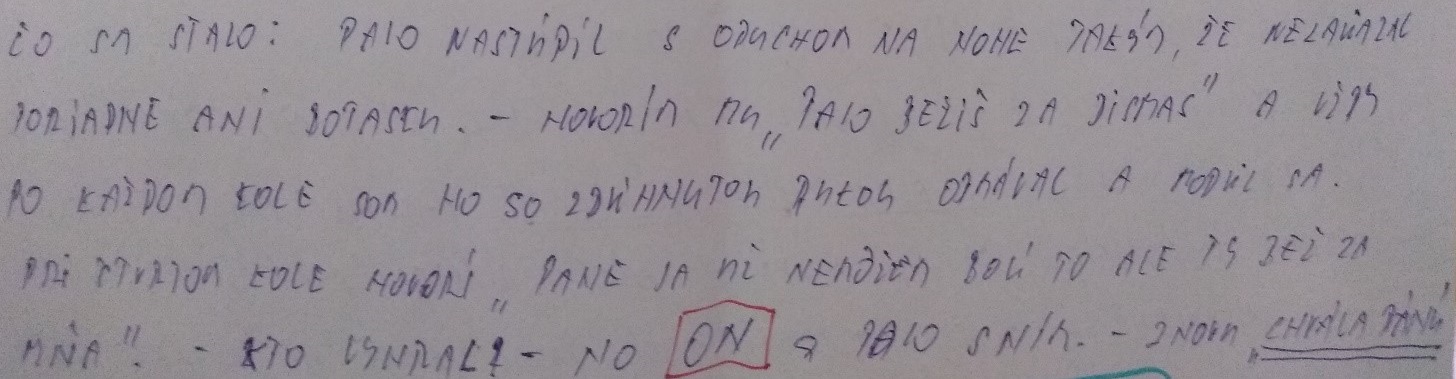 ČO SA STALO: PALO NASTÚPIL S OPUCHOM NA NOHE TAKÝM, ŽE NEZAVIAZAL
PORIADNE ANI BOTASKU. - HOVORÍM MU „PALO BEŽÍŠ ZA DISMAS" A VŽDY
PO KAŽDOM KOLE SOM HO SO ZDVIHNUTOU RUKOU ODMÁVAL A MODLIL SA.
PRI ŠTVRTOM KOLE HOVORÍ „PANE JA NI NEMÔŽEM BOLÍ TO ALE TY BEŽ ZA
MŇA". - KTO VYHRAL? - NO ON A PALO S NÍM. - ZNOVU „CHVÁLA PÁNU